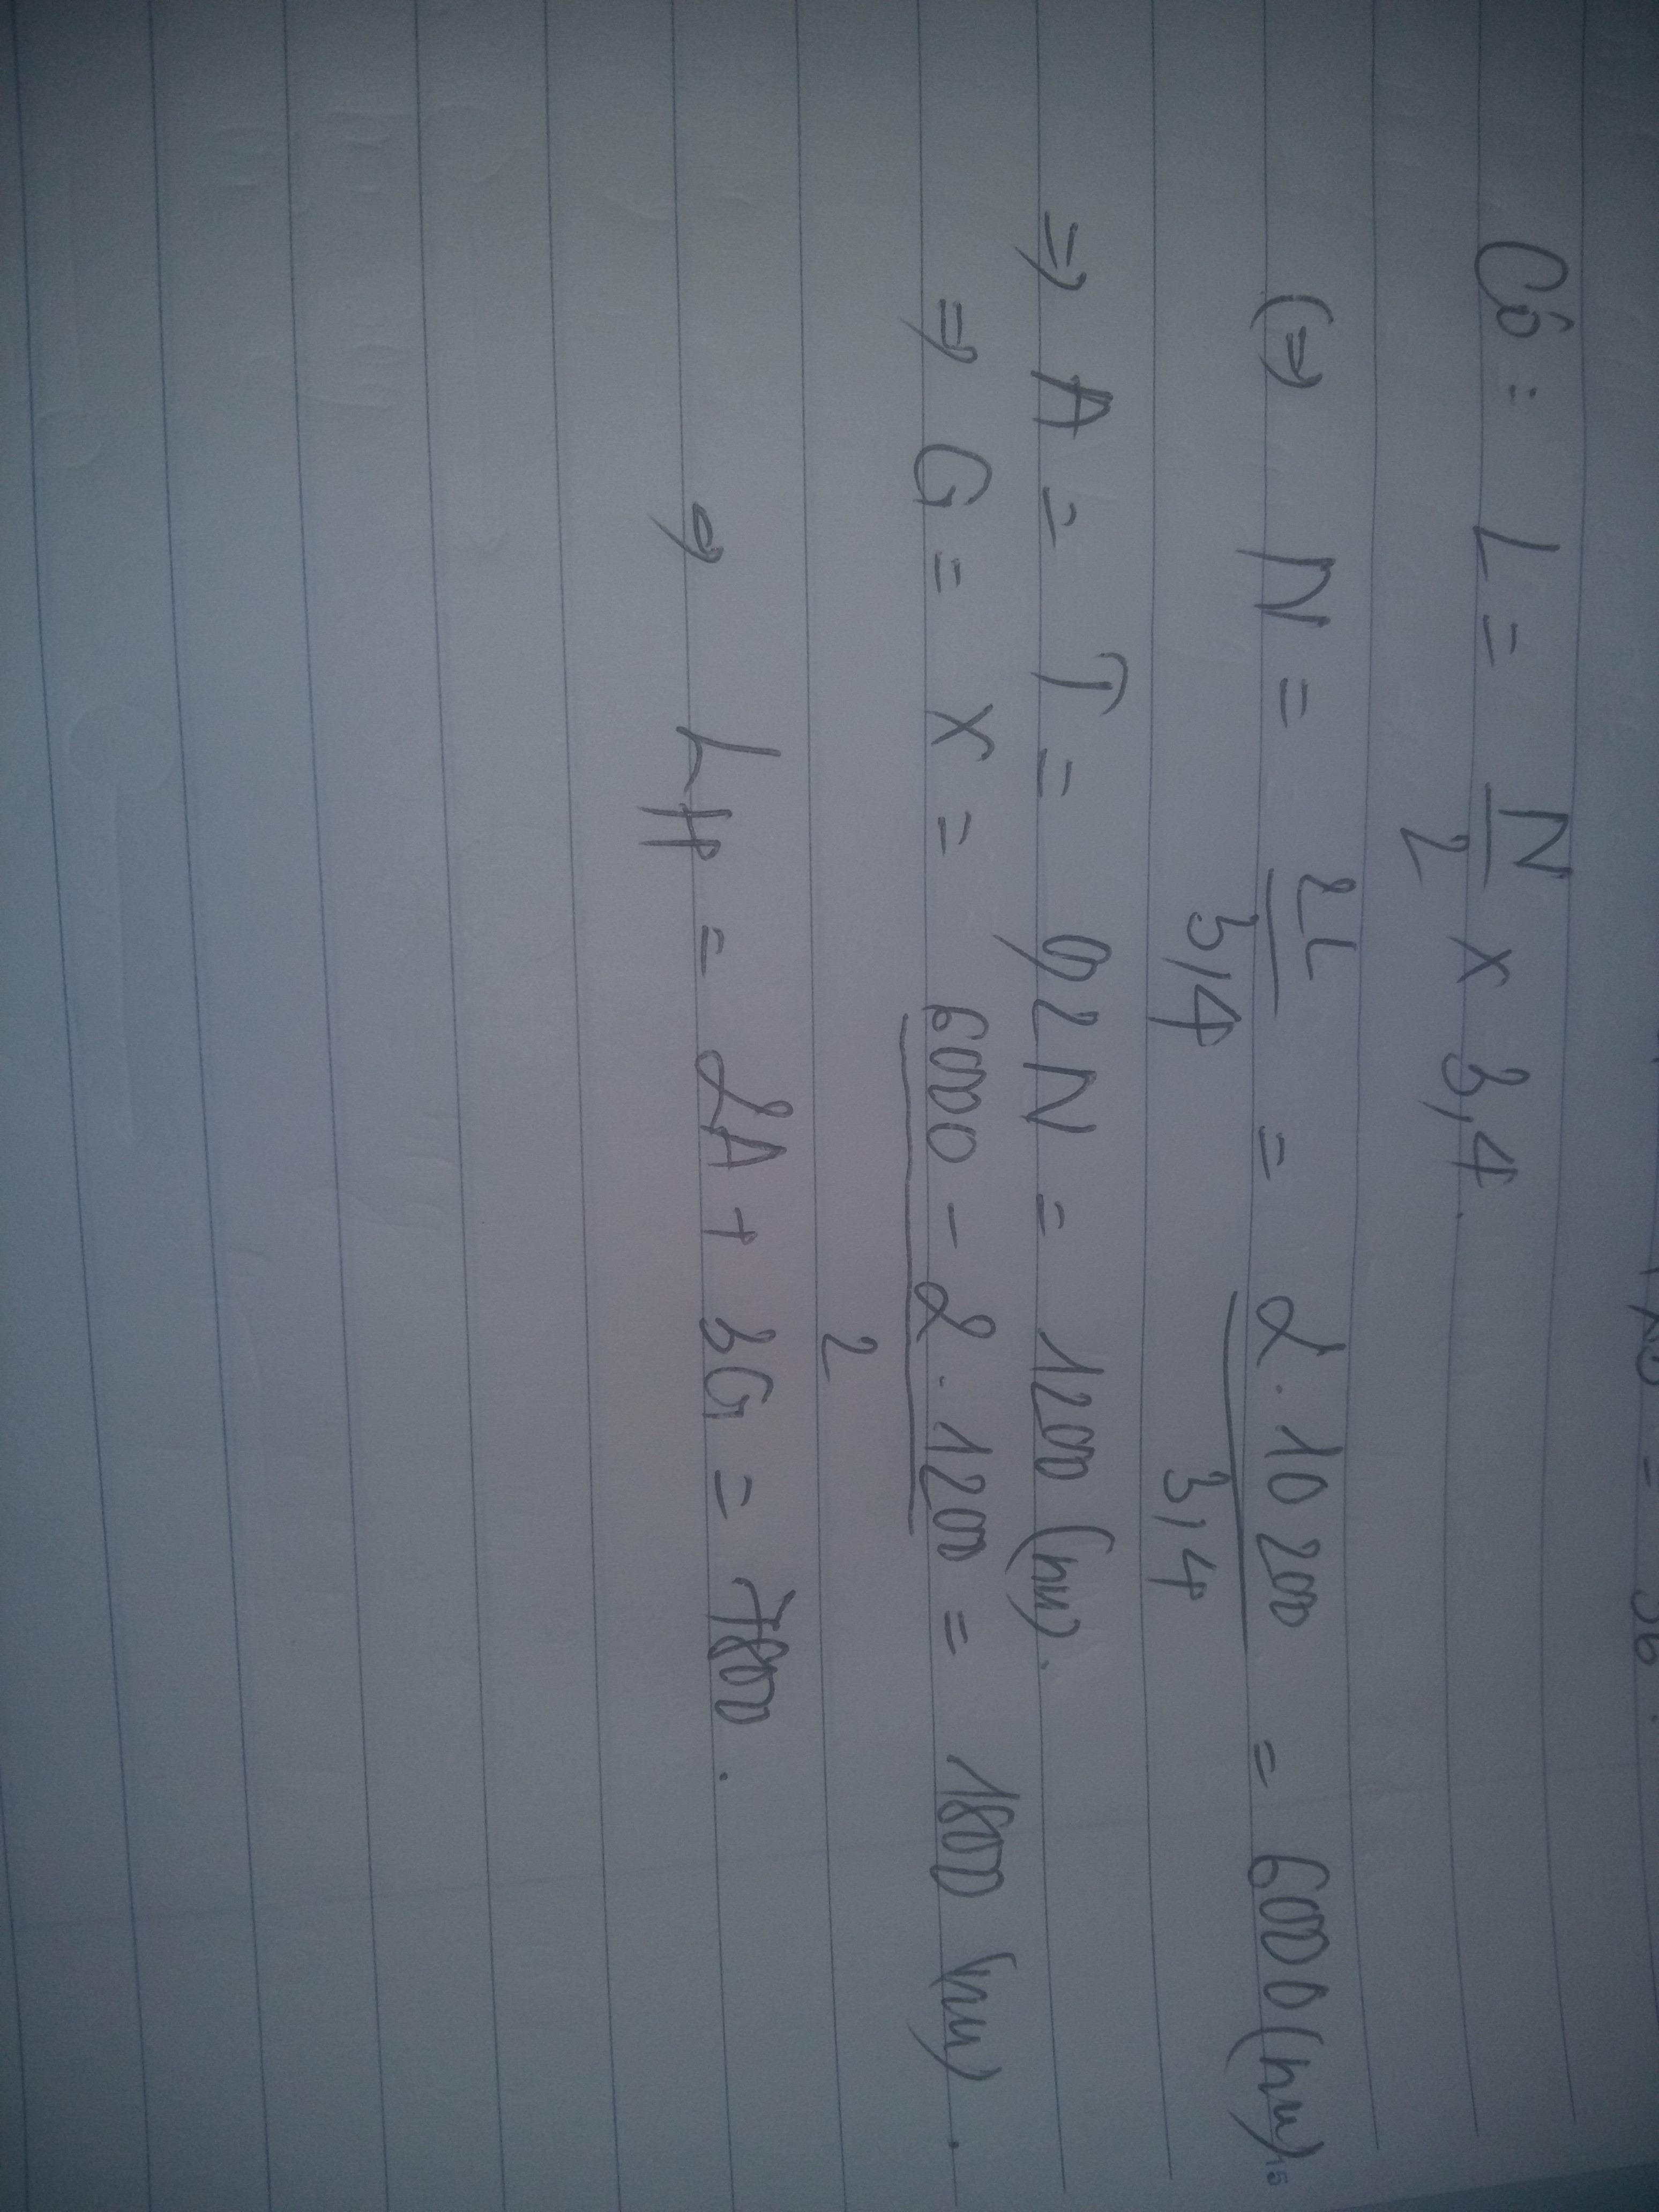 Có : L = N/2 x 3,4.
(=) N = 2L/3,4 = 2.10 200/3,4 = 6000 (nu)
=) A = T = 0,2N = 1200 (nu).
=) G = X = 6000 - 2.1200/2 = 1800 (nu).
=) LH = 2A + 3G = 7800.